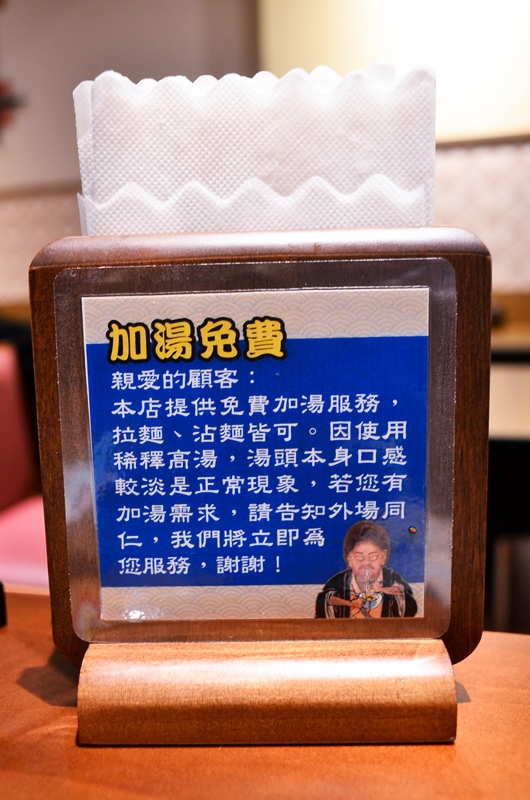 加湯免費
親愛的顧客：
本店提供免費加湯服務，
拉麵、沾麵皆可。因使用
稀釋高湯，湯頭本身口感
較淡是正常現象，若您有
加湯需求，請告知外場同
仁，我們將立即為
您服務，謝謝！